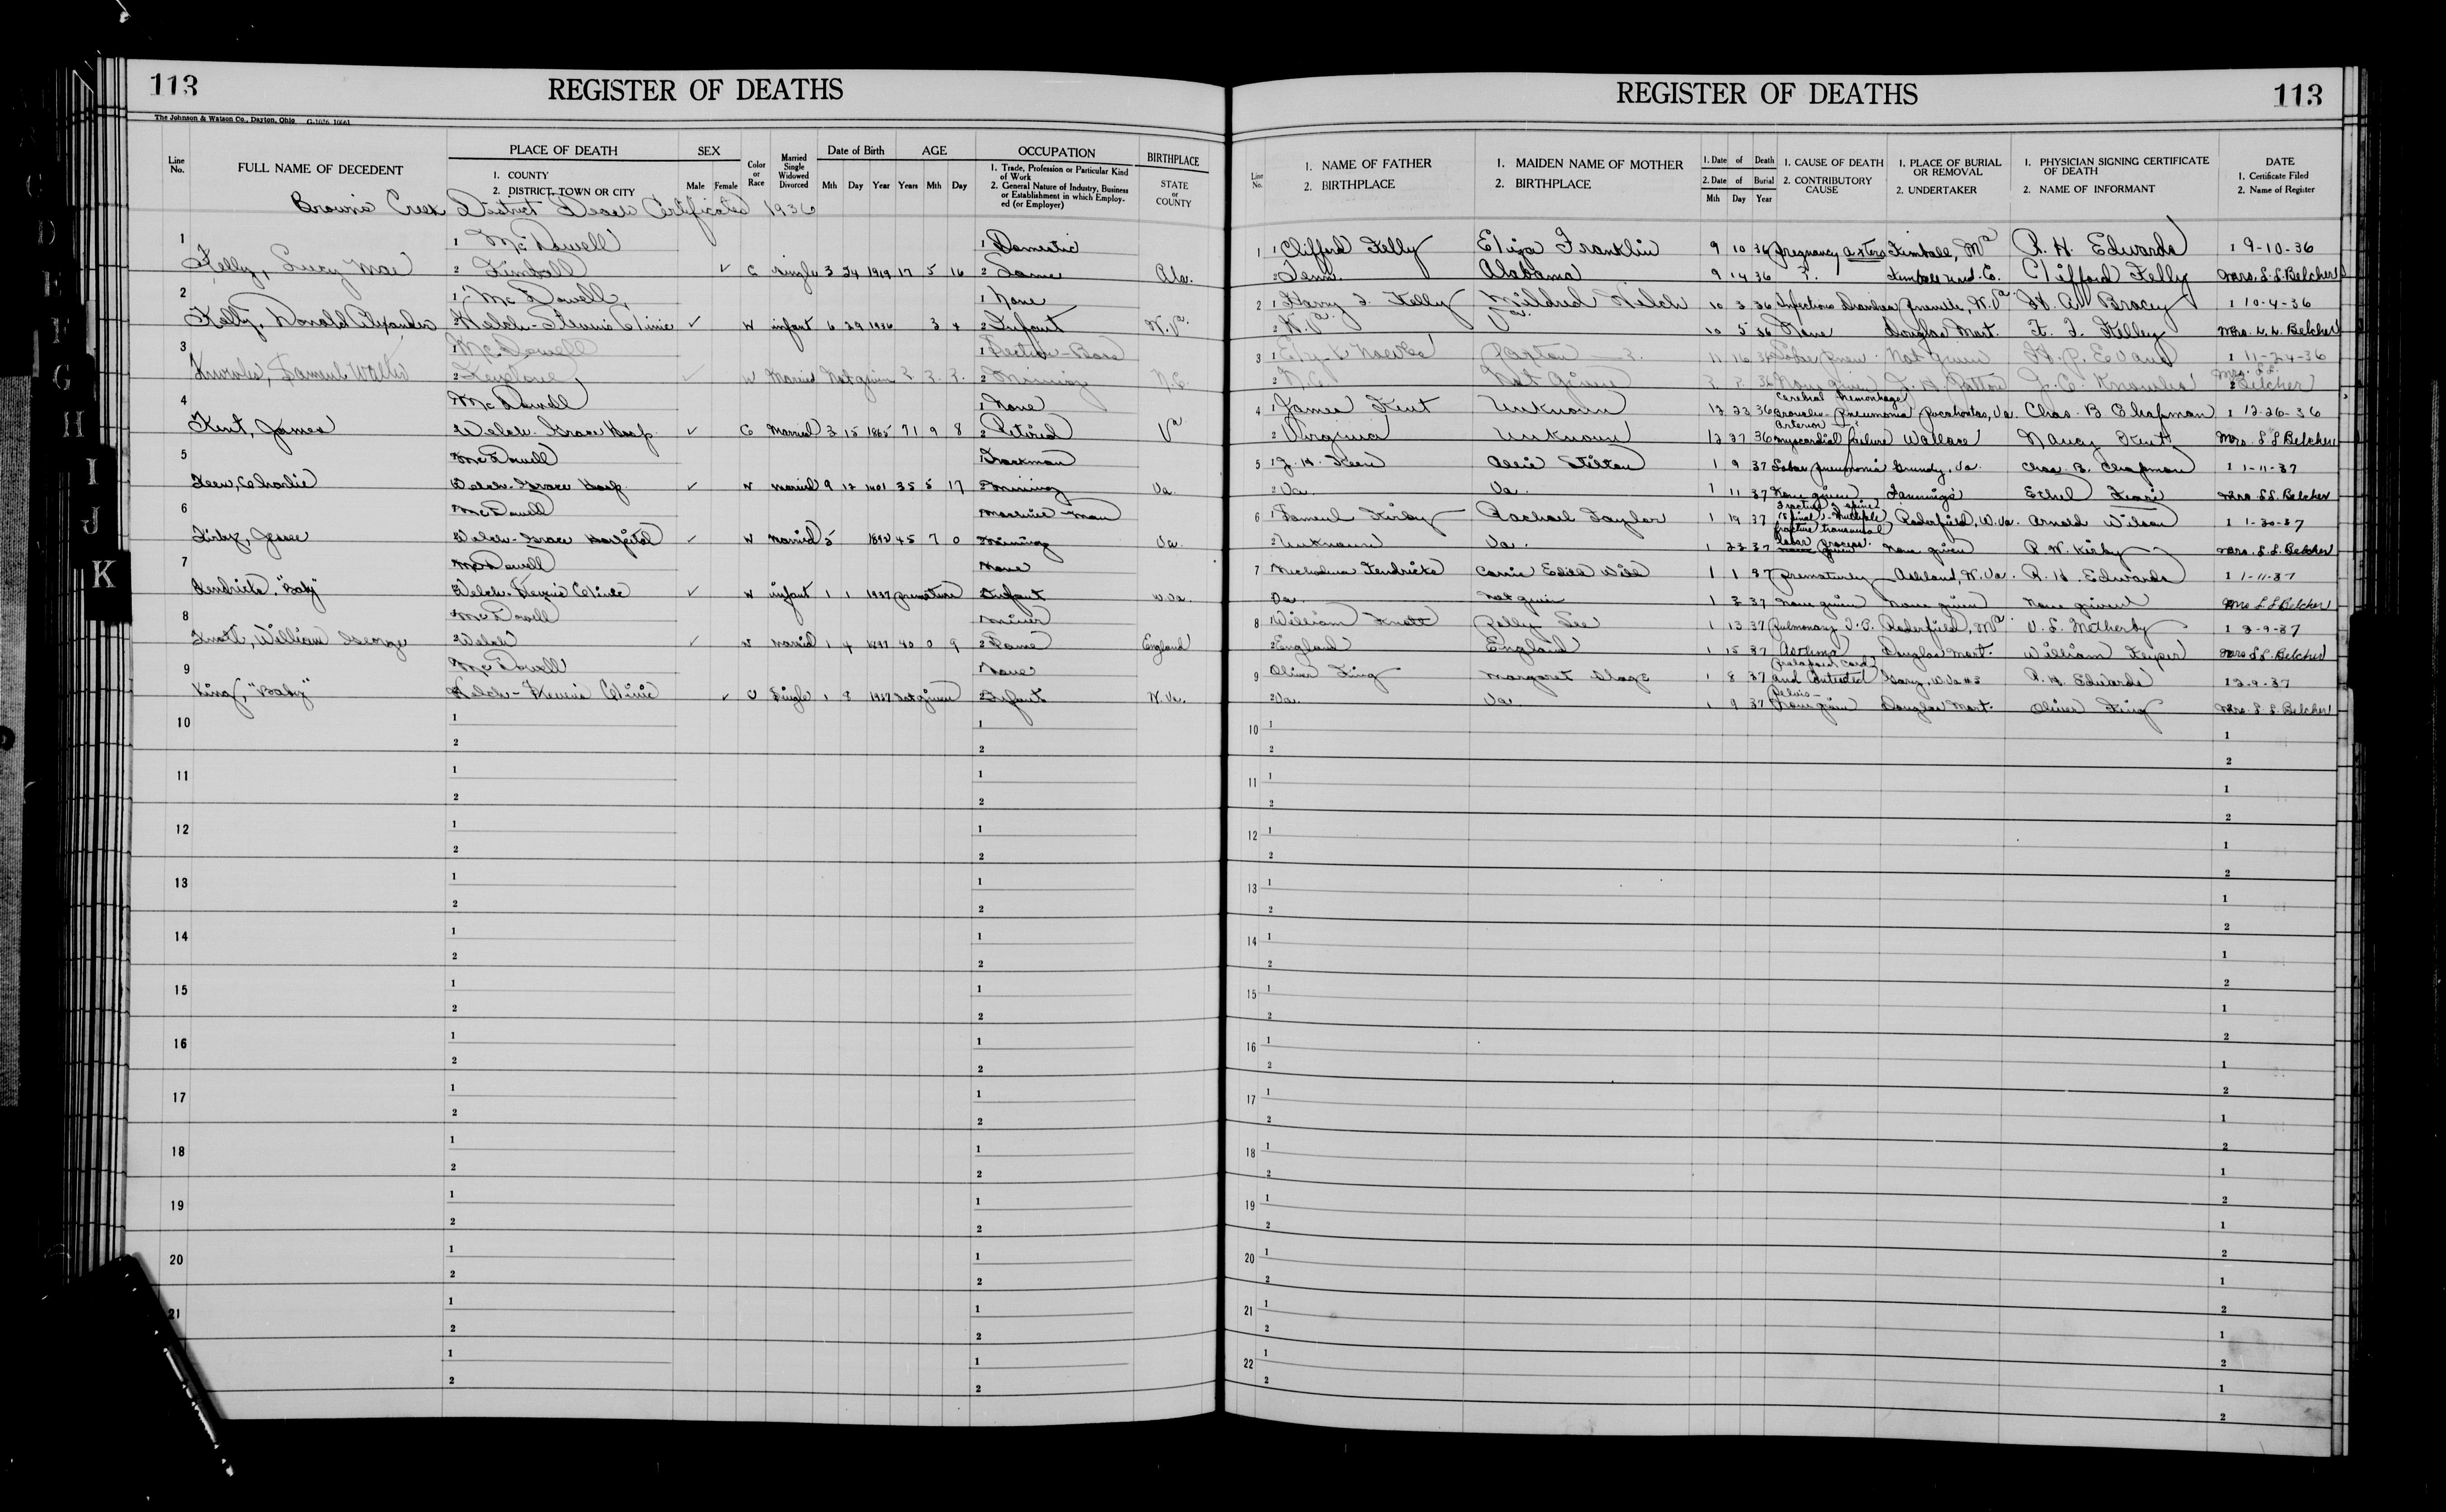 113 REGISTER OF DEATHS
The Johnson & Watson Co., Dayton, Ohio G-1036 10661
Line No. FULL NAME OF DECEDENT PLACE OF DEATH 1. COUNTY 2. DISTRICT, TOWN OR CITY SEX Male Female Color or Race Married Single Widowed Divorced Date of Birth Mth Day Year AGE Years Mth Day OCCUPATION 1. Trade, Profession or Particular Kind of Work 2. General Nature of Industry, Business or Establishment in which Employed (or Employer) BIRTHPLACE STATE or COUNTY
Browns Creek District Death Certificates 1936
1 1 McDowell 1 Domestic
Kelly, Lucy Mae 2 Kimball ✓ C single 3 24 1919 17 5 16 2 Same Ala.
2 1 McDowell, 1 None
Kelly, Donald Alexander 2 Welch-Stevens Clinic ✓ W infant 6 29 1936 3 4 2 Infant W.Va.
3 1 McDowell 1 Section-Boss
Knowles, Samuel Walter 2 Keystone, ✓ W Married Not given ? ? ? 2 Mining N.C.
4 McDowell 1 None
Kent, James Welch-Grace Hosp. ✓ C Married 3 15 1865 71 9 8 2 Retired Va
5 McDowell Trackman
Keen, Charlie Welch-Grace Hosp. ✓ W married 9 12 1901 35 5 17 2 Mining Va.
6 McDowell Machine-Man
Kirby, Jesse Welch-Grace Hospital ✓ W married 5 1892 45 7 0 Mining Va.
7 McDowell None
Kendricks, "Baby" Welch-Stevens Clinic ✓ W infant 1 1 1937 premature Infant W.Va.
8 McDowell Miner
Knott, William George Welch ✓ W married 1 4 1897 40 0 9 2 Same England
9 McDowell None
King, "Baby" Welch-Stevens Clinic ✓ C Single 1 8 1937 not given Infant W.Va.
10 1 1
2 2
11 1 1
2 2
12 1 1
2 2
13 1 1
2 2
14 1 1
2 2
15 1 1
2 2
16 1 1
2 2
17 1 1
2 2
18 1 1
2 2
19 1 1
2 2
20 1 1
2 2
21 1 1
2 2
1 1
2 2
G
D
E
F
G
H
I
J
K
REGISTER OF DEATHS 113
Line No. 1. NAME OF FATHER 2. BIRTHPLACE 1. MAIDEN NAME OF MOTHER 2. BIRTHPLACE 1. Date of Death 2. Date of Burial Mth Day Year 1. CAUSE OF DEATH 2. CONTRIBUTORY CAUSE 1. PLACE OF BURIAL OR REMOVAL 2. UNDERTAKER 1. PHYSICIAN SIGNING CERTIFICATE OF DEATH 2. NAME OF INFORMANT DATE 1. Certificate Filed 2. Name of Register
1 1 Clifford Kelly Eliza Franklin 9 10 36 pregnancy Kimball, R. H. Edwards 1 9-10-36
2 Tenn. Alabama 9 14 36 ?. Kimball Und. C. Clifford Kelly Mrs. L. L. Belcher
2 1 Harry F. Kelly Mildred Welch 10 3 36 Infectious Diarrhea W.Va H. A. Bracey 1 10-4-36
2 W.Va Va. 10 5 36 None Douglas Mort. H. F. Kelley Mrs. L. L. Belcher
3 1 Knowles Payton ? 11 16 36 Lobar pneu. Not given H. P. Evans 1 11-24-36
2 N.C. Not Given ? ? 36 None given Patton J. C. Knowles Mrs. L. L. Belcher
4 1 James Kent Unknown 12 23 36 Cerebral Hemorrhage Broncho-Pneumonia Pocahontas, Va. Chas. B. Chapman 1 12-26-36
2 Virginia Unknown 12 27 36 myocardial failure Wallace Nancy Kent Mrs. L L Belcher
5 1 J. H. Keen Alice Stilton 1 9 37 Lobar pneumonia Grundy, Va. Chas. B. Chapman 1 1-11-37
2 Va. Va. 1 11 37 None given Fanning's Ethel Mrs. L L. Belcher
6 1 Samuel Kirby Rachael Taylor 1 19 37 Fracture spine multiple fracture transverse Roderfield, W.Va. Arnold Wilson 1 1-30-37
2 Unknown Va. 1 22 37 process. none given None given R. W. Kirby Mrs. L. L. Belcher
7 Nicholas Kendricks Carrie Edith Will 1 1 37 Prematurity Ashland, W.Va. R. H. Edwards 1 1-11-37
Va. Not given 1 2 37 None given None given None given Mrs L L Belcher
8 1 William Knott Polly Lee 1 13 37 Pulmonary T.B. Roderfield, V. L. Wetherby 1 2-9-37
2 England England 1 15 37 Asthma Douglas Mort. William Mrs L L. Belcher
9 Oliver King Margaret 1 8 37 Prolapsed Cord and Contracted Gary, W.Va #2 R. H. Edwards 1 2-9-37
2 Va. Va. 1 9 37 Pelvis- None given Douglas Mort. Oliver King Mrs. L. L. Belcher
10 1 1
2 2
11 1 1
2 2
12 1 1
2 2
13 1 1
2 2
14 1 1
2 2
15 1 1
2 2
16 1 1
2 2
17 1 1
2 2
18 1 1
2 2
19 1 1
2 2
20 1 1
2 2
21 1 1
2 2
22 1 1
2 2